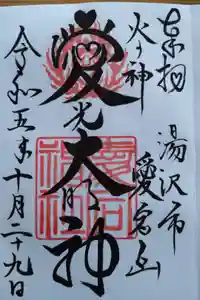 奉拝
火ヶ神
湯沢市
愛宕山
愛光大明神
愛宕神社
令和五年十月二十九日